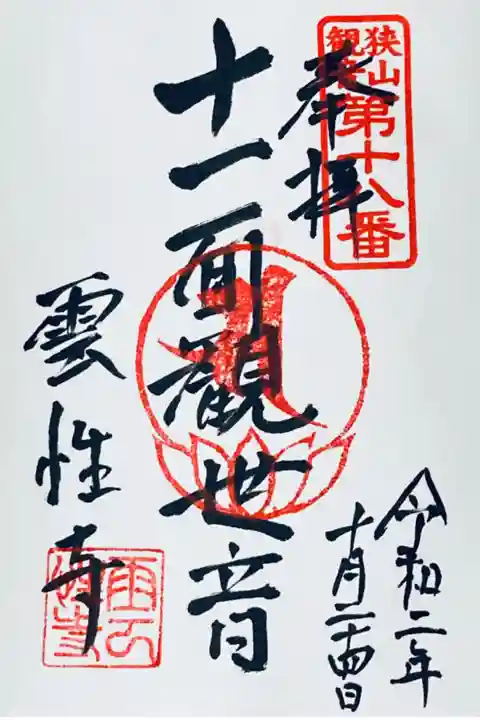 狭山
観音
第十八番
奉拝
十一面観世音
雲性寺
令和二年
十月二十四日
雲性寺